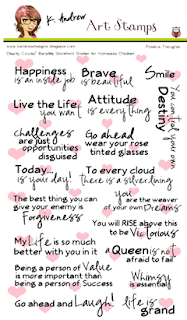 K. Andrew
Art Stamps
www.kandrewdesigns.blogspot.com
Positive Thoughts
Charity Crowns' Benefits Storefront Shelter for Homeless Children
Happiness
is an inside job
Brave
is beautiful
Smile
Live the Life
you want
Attitude
is everything
You control your own
Destiny
challenges
are just
opportunities
disguised
Go ahead
wear your rose
tinted glasses
Today...
is your day!
To every cloud
there is a silver lining
The best thing you can
give your enemy is
Forgiveness
you are the weaver
of your own Dreams
You will RISE above this
to be Victorious
My Life is so much
better with you in it
a Queen is not
afraid to fail
Being a person of Value
is more important than
being a person of Success
Whimsy
is essential
Go ahead and Laugh!
life is
grand